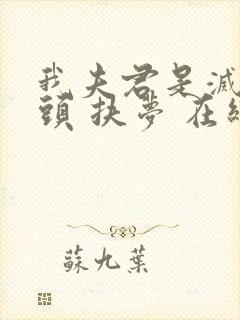 我夫君是滅
頭 扶夢 在線
蘇九葉